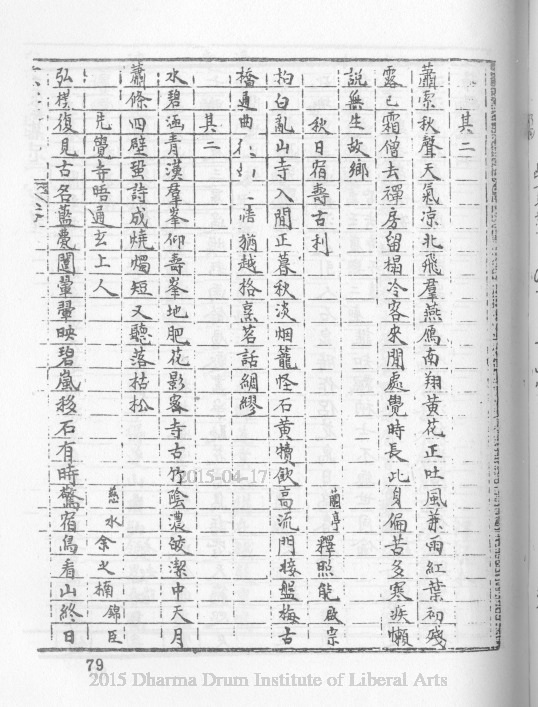 其二
蕭索秋聲天氣凉北飛羣燕鴈南翔黄花正吐風兼雨紅葉初殘
露已霜僧去禪房留榻冷客來閒處覺時長此身偏苦多寒疾懶
說無生故鄉
秋日宿壽古刹 蘭亭釋照能啟宗
柏白亂山寺入閒正暮秋淡烟籠怪石黄犢飲高流門接盤梅古
橋通曲 猶越格烹茗話綢繆
其二
水碧涵青漢羣峯仰壽峯地肥花影密寺古竹陰濃皎潔中天月
蕭條四壁蛩詩成燒燭短又聽落枯松
先覺寺晤通玄上人 慈水余之楠錦臣
弘撲復見古名藍甍闥翬翬映碧嵐移石有時驚宿鳥看山終日
79
2015-04-17
2015 Dharma Drum Institute of Liberal Arts